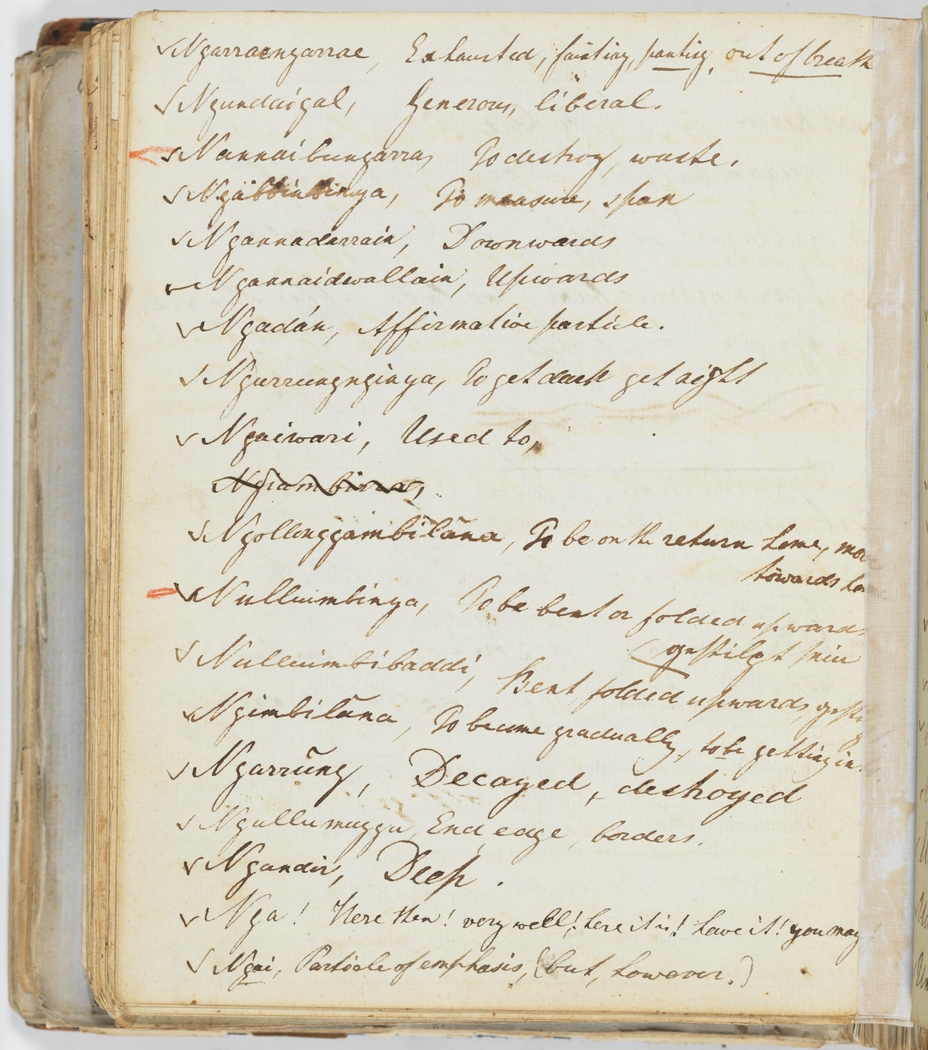 Ngarraengarrae, Exhausted, fainting, panting, out of breath
Ngundaigal, Generous, liberal.
Nannaibungarra, To destroy, waste.
Ngabbinbinya, To measure, span
Ngannadarrain, Downwards
Ngannaidwallain, Upwards
Ngadán, Affirmative particle.
Ngurrungnginya, To get dark get night
Ngaiwari, Used to,
Ngollonggambilāna, To be on the return home, mov
towards ho
Nulluimbinya, To be bent or folded upwards
(gestülpt sein
Nulluimbibaddi, Bent folded upwards,
Ngimbilāna, To become gradually, to be getting in
Ngarrūng, Decayed, destroyed
Ngullumuggu, End, edge, borders.
Ngandir, Deep.
Nga! Here then! very well! here it is! have it! you may
Ngai, Particle of emphasis, (but, however.)